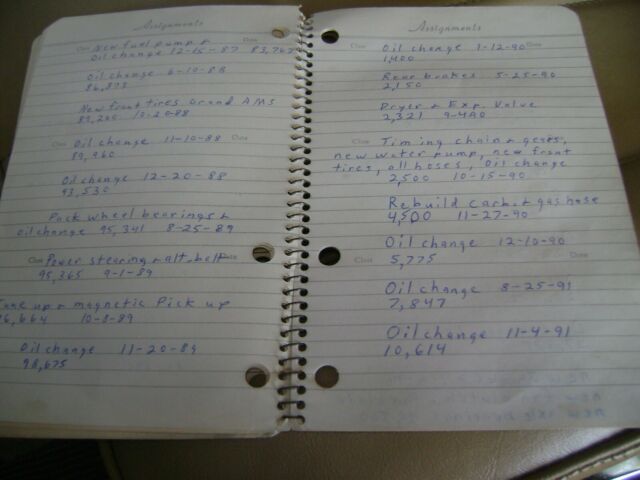 Assignments
New fuel pump &
Oil change 12-15-87 83,767
Oil change 6-10-88
86,893
New front tires Grand AMS
89,200 10-20-88
Oil change 11-10-88
89,960
Oil change 12-20-88
93,530
Pack wheel bearings &
oil change 95,341 8-25-89
Power steering & alt. belt
95,365 9-1-89
Tune up & magnetic Pick up
96,664 10-8-89
Oil change 11-20-89
98,675
Assignments
Class Date
Oil change 1-12-90
1,400
Rear brakes 5-25-90
2,150
Dryer & Exp. Valve
2,321 9-4-90
Class
Timing chain & gears,
new water pump, new front
tires, all hoses, Oil change
2,500 10-15-90
Rebuild Carb. & gas hose
4,500 11-27-90
Oil change 12-10-90
Class Date
5,775
Oil change 8-25-91
7,847
Oil change 11-4-91
10,614